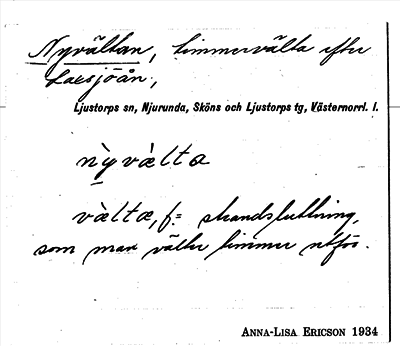 Nyvältan, timmervälta efter
Laxsjöån.,
Ljustorps sn, Njurunda, Sköns och Ljustorps tg, Västernorrl. l.
nỳvæ̀lta
væ̀lta, f. = strandsluttning,
som man välter timmer utför.
ANNA-LISA ERICSON 1934